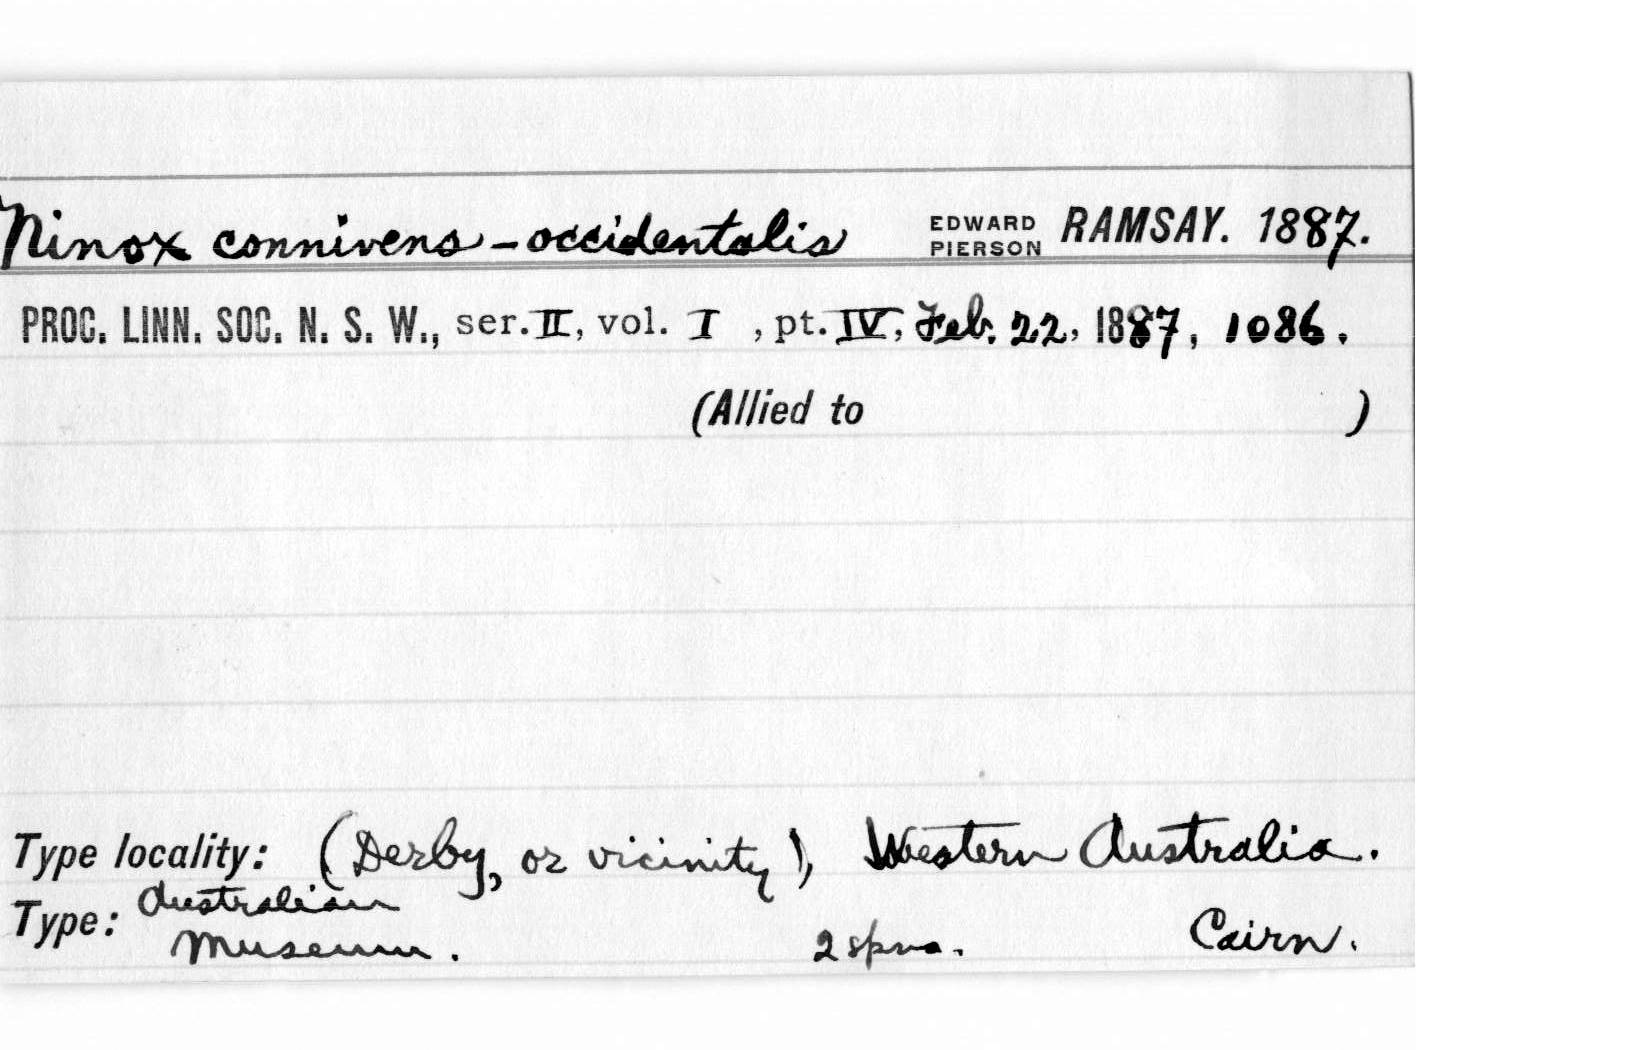 Ninox connivens-occidentalis EDWARD PIERSON RAMSAY. 1887.
PROC. LINN. SOC. N. S. W., ser. II, vol. I , pt. IV, Feb. 22, 1887, 1086.
(Allied to )
Type locality: (Derby, or vicinity), Western Australia.
Type: Australian Museum. 2 spns. Cairn.